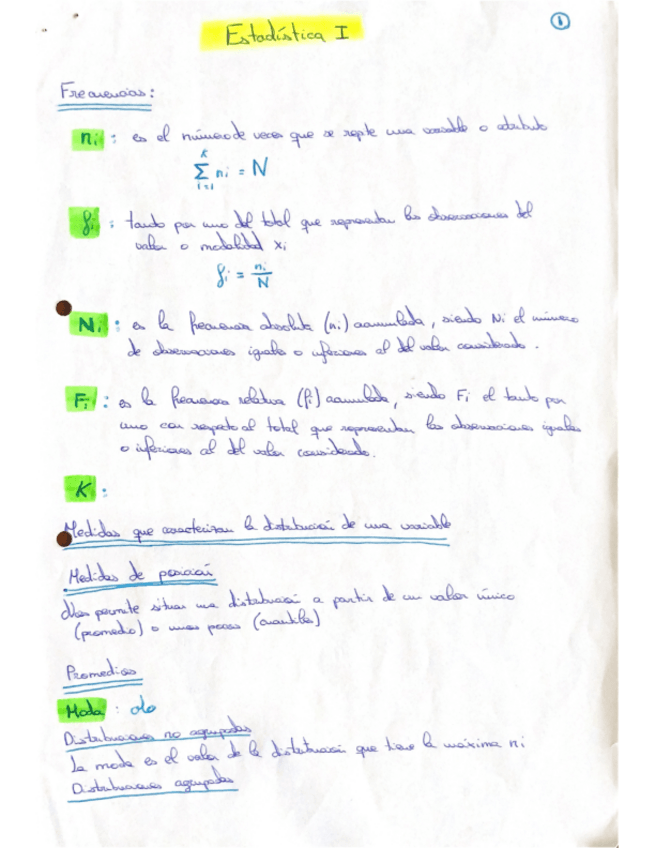 Estadística I
1
Frecuencias:
ni : es el número de veces que se repite una variable o atributo
K
Σ ni = N
i=1
fi : tanto por uno del total que representan las observaciones del
valor o modalidad xi
fi = ni/N
Ni : es la frecuencia absoluta (ni) acumulada, siendo Ni el número
de observaciones iguales o inferiores al del valor considerado.
Fi : es la frecuencia relativa (fi) acumulada, siendo Fi el tanto por
uno con respecto al total que representan las observaciones iguales
o inferiores al del valor considerado.
K :
Medidas que caracterizan la distribución de una variable
Medidas de posición
Nos permite situar una distribución a partir de un valor único
(promedio) o unos pocos (cuantiles)
Promedios
Moda :
Distribuciones no agrupadas
La moda es el valor de la distribución que tiene la máxima ni
Distribuciones agrupadas